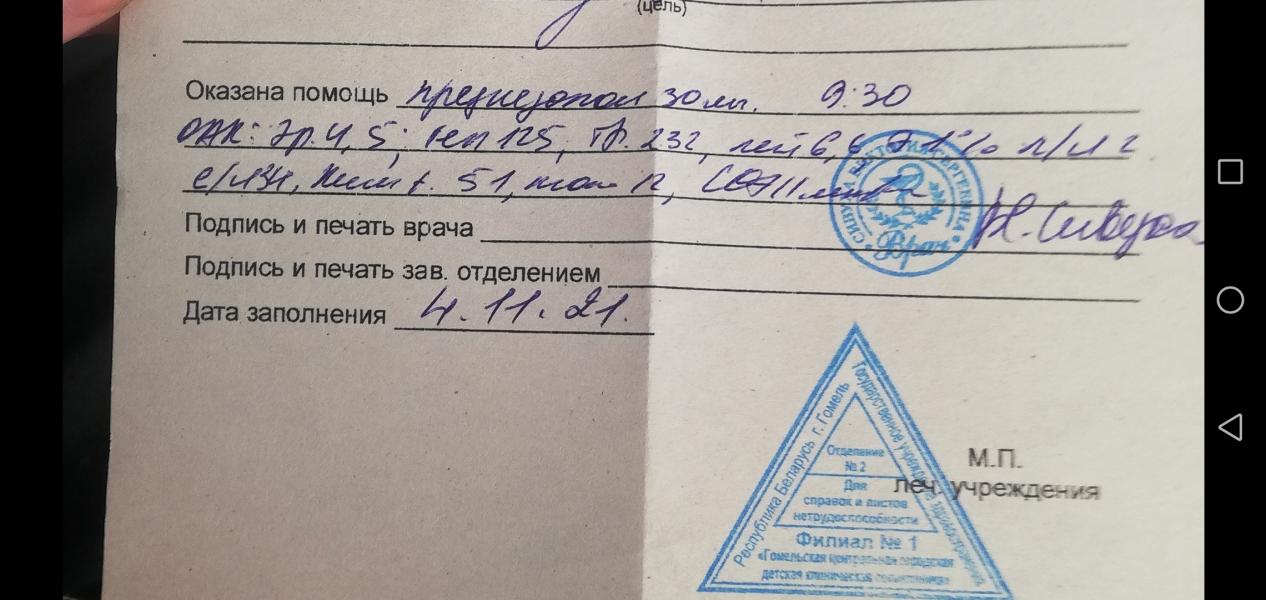 (цель)
Оказана помощь преднизолон 30 мг. 9:30
ОАК: Эр. 4,5; гем 125, Тр. 232, лей 6,6 Э 1% п/я 2
с/я 34, Лимф. 51, мон 12, СОЭ 11 мм
Подпись и печать врача
Подпись и печать зав. отделением
Дата заполнения 4.11.21.
Врач
Республика Беларусь г. Гомель
Государственное учреждение здравоохранения
Отделение
№ 2
Для
справок и листов
нетрудоспособности
Филиал № 1
«Гомельская центральная городская
детская клиническая поликлиника»
М.П.
леч. учреждения